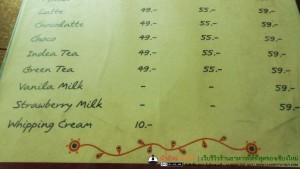 Latte 49.- 55.- 59.-
Chocolatte 49.- 55.- 59.-
Choco 49.- 55.- 59.-
Indea Tea 49.- 55.- 59.-
Green Tea 49.- 55.- 59.-
Vanila Milk - - 59.-
Strawberry Milk - - 59.-
Whipping Cream 10.-